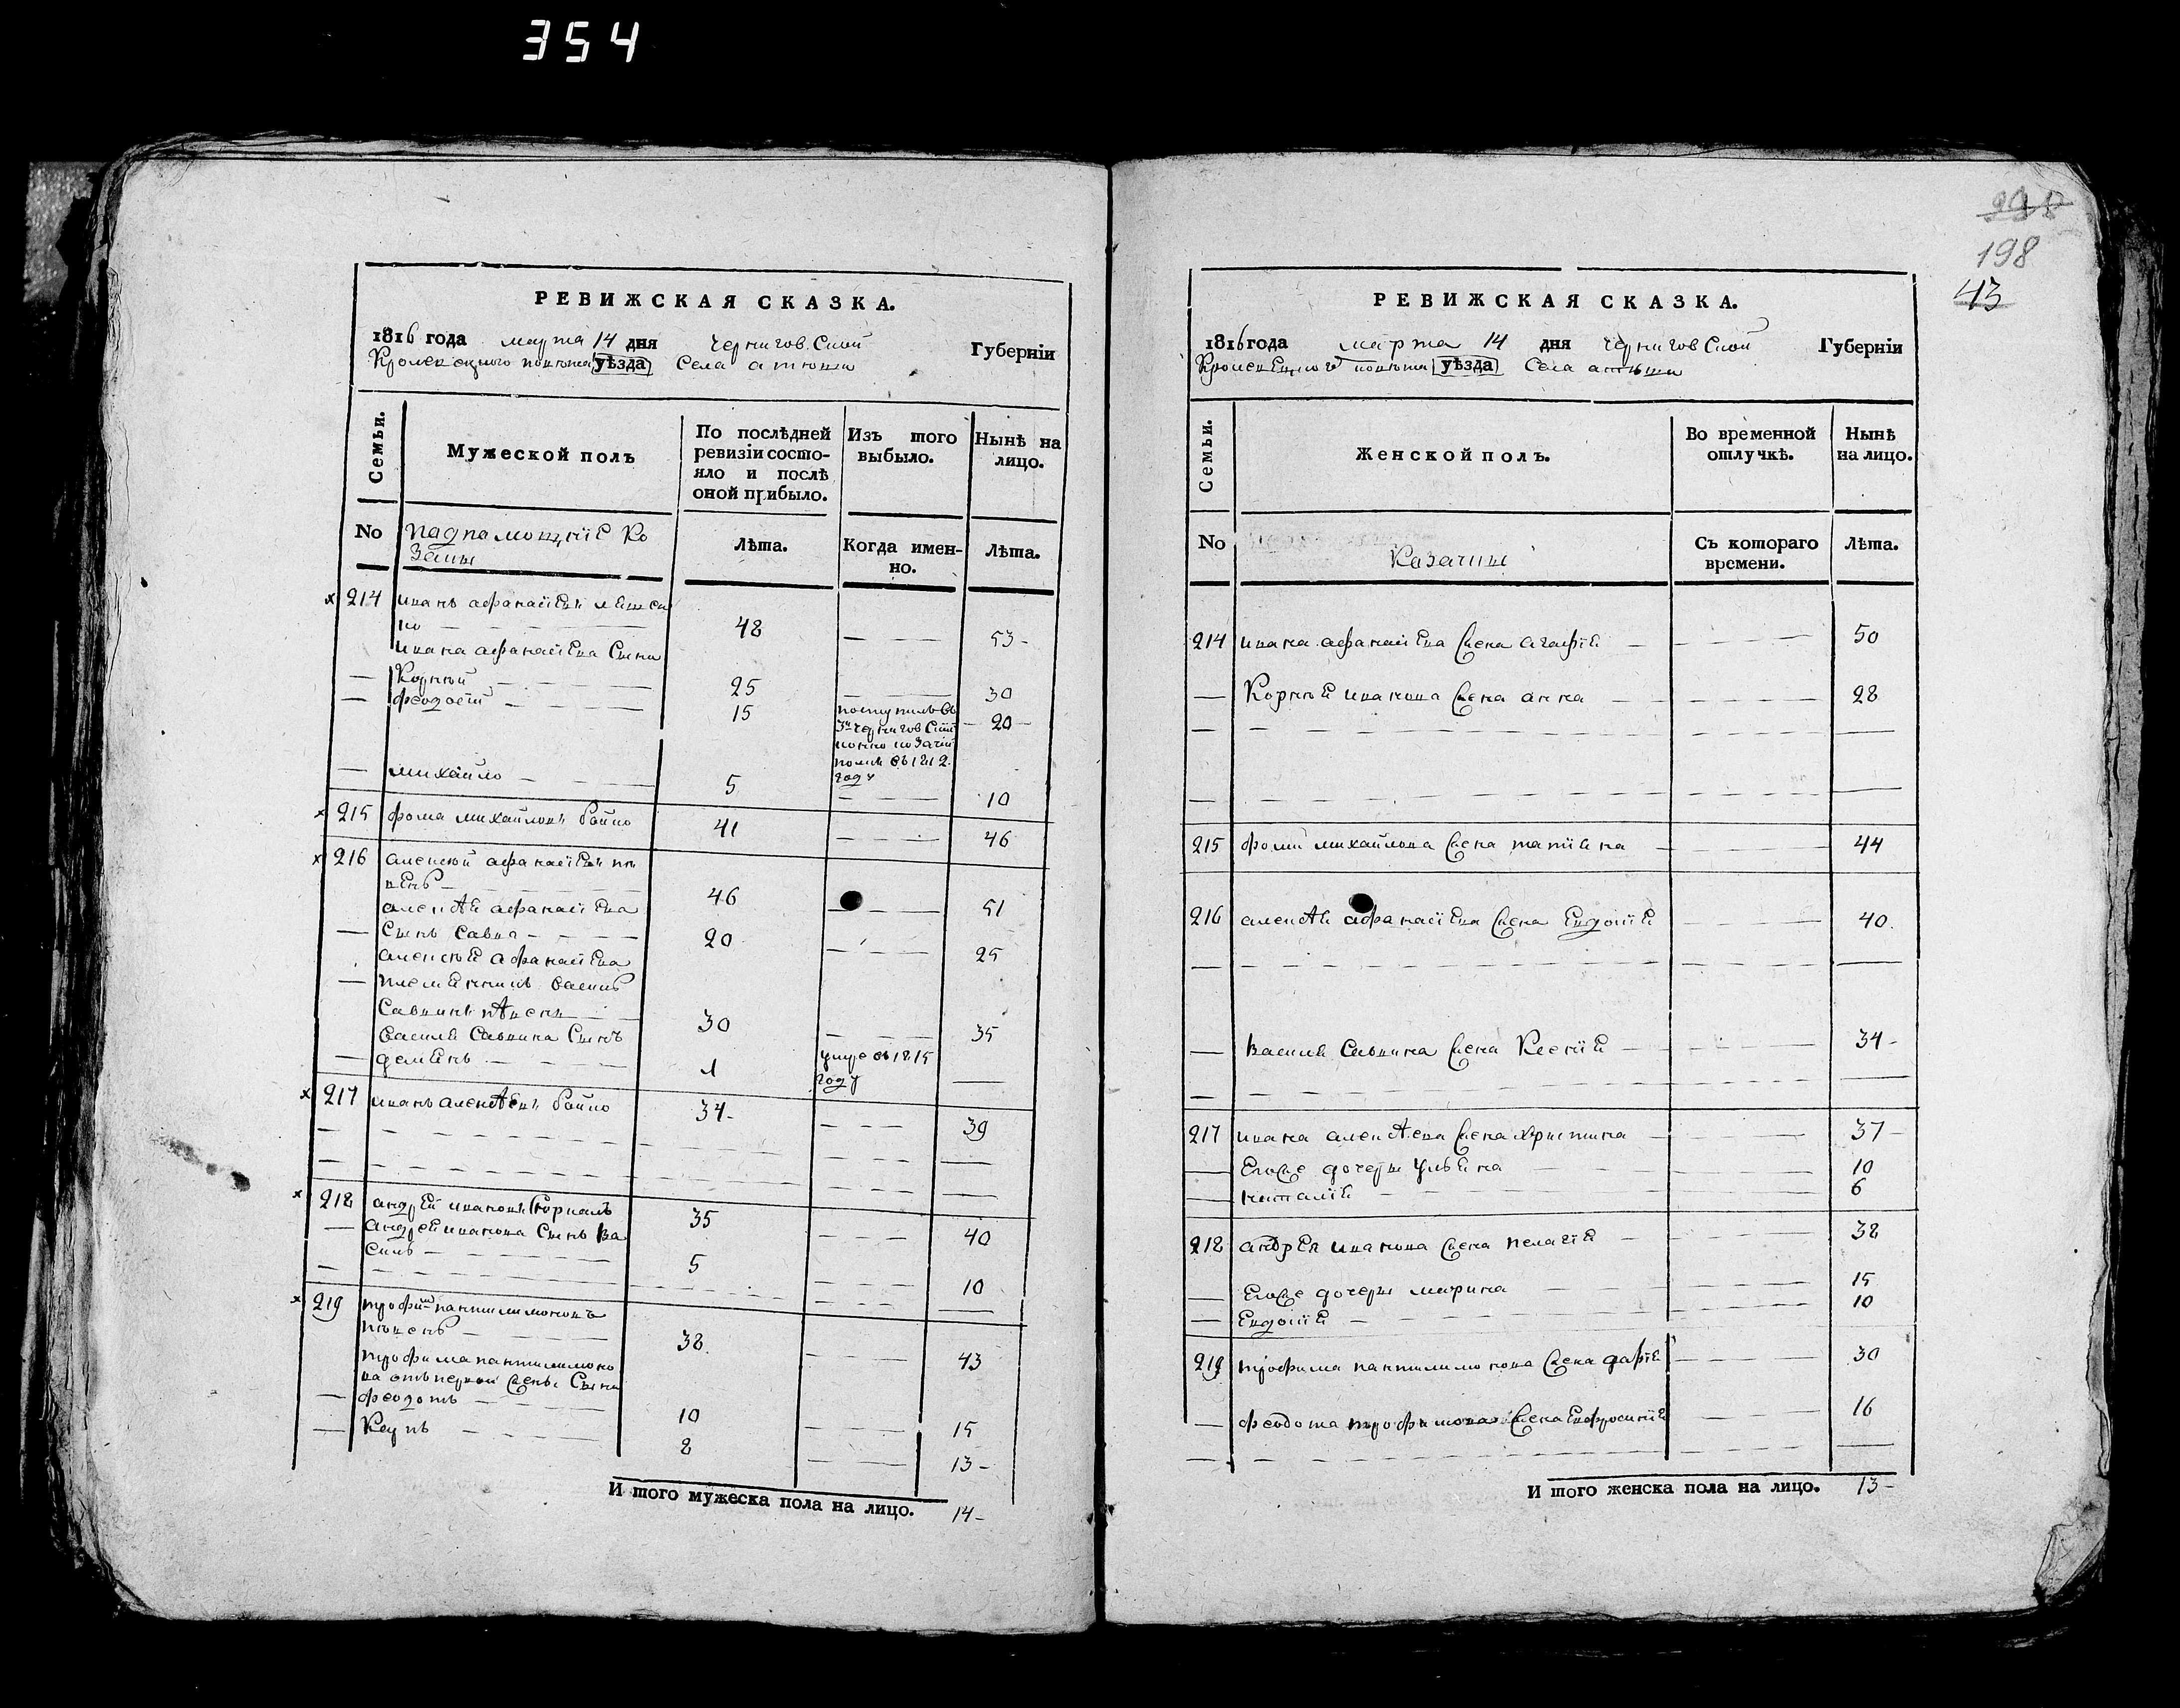 354
РЕВИЖСКАЯ СКАЗКА.
1816 года марта 14 дня Чернигов.Ской Губерніи
Кролевецкого повѣта уѣзда Села атюши
Семьи.
Мужеской полъ
По послѣдней ревизіи состояло и послѣ оной прибыло.
Изъ того выбыло.
Нынѣ на лицо.
No
падпамощніе Ко
заки
Лѣта.
Когда именно.
Лѣта.
214 иванъ афанасіевъ
48 53
ивана афанасіева Сыни
Корній 25 30
феодосій 15 поступилъ въ 20
3й черниговской
конно козачій
полкъ въ 1812
году
михайло 5 10
215 фома михайловъ бойко 41 46
216 алексѣй афанасіевъ пи
вень 46 51
алексѣя афанасіева
Сынъ Савка 20 25
алексѣя афанасіева
племенникъ василь
Савкинъ 30 35
василя Савкина Сынъ
демянъ 1 умре въ 1815
году
217 иванъ алексѣевъ бойко 34 39
218 андрей ивановъ 35 40
андрея иванова Сынъ ва
силь 5 10
219 трофимъ пантилимоновъ
пивень 38 43
трофима пантилимоно
ва отъ первой жены Сыни
феодотъ 10 15
Карпъ 8 13
И того мужеска пола на лицо. 14
198
43
РЕВИЖСКАЯ СКАЗКА.
1816 года марта 14 дня черниговской Губерніи
Кролевецкого повѣта уѣзда Села атюши
Семьи.
Женской полъ.
Во временной отлучкѣ.
Нынѣ на лицо.
No
Казачки
Съ котораго времени.
Лѣта.
214 ивана афанасіева жена агафія 50
Корнія иванова жена анна 28
215 фоми михайлова жена татіяна 44
216 алексѣя афанасіева жена Евдокія 40
василя Савкина жена Ксенія 34
217 ивана алексѣева жена христина 37
Егоже дочери уляна 10
наталія 6
218 андрея иванова жена пелагія 38
Егоже дочери марина 15
Евдокія 10
219 трофима пантилимонова жена дарія 30
феодота трофимова жена Ефросинія 16
И того женска пола на лицо. 13